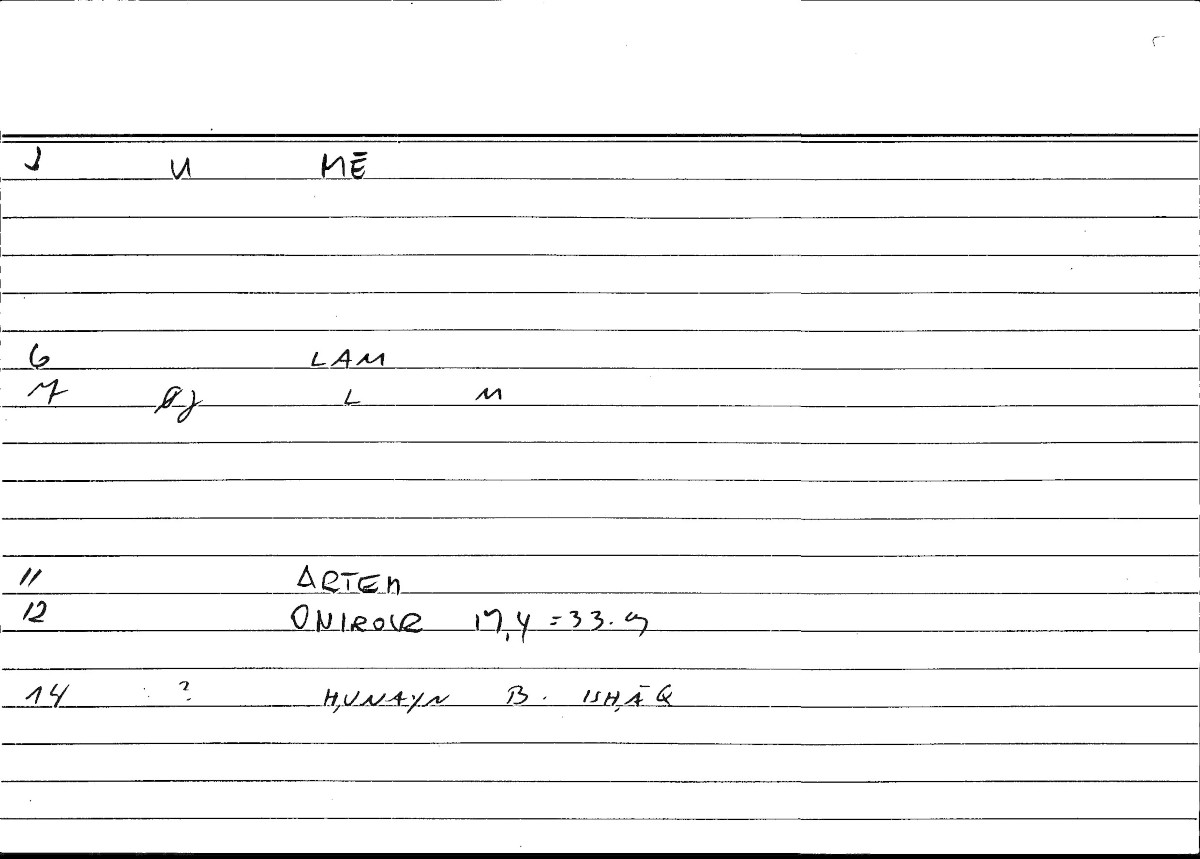 J U MĒ
6 LAM
7 L M
11 ARTEM
12 ONIROCR 17,4 = 33.9
14 ? ḤUNAYN B. ISḤĀQ